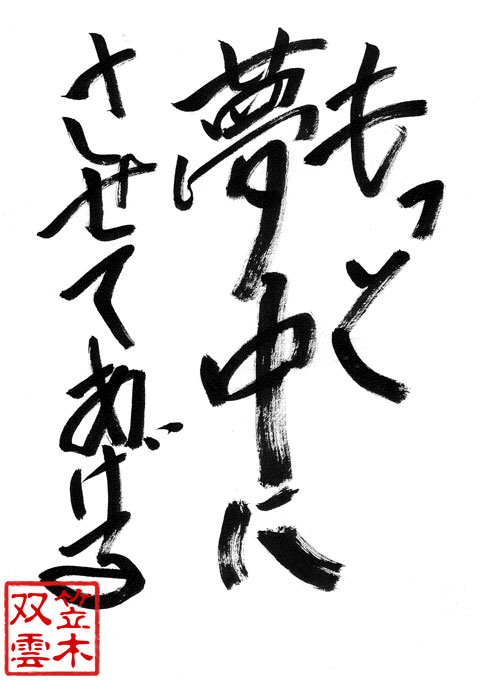 もっと
夢中に
させてあげる
笠木
双雲